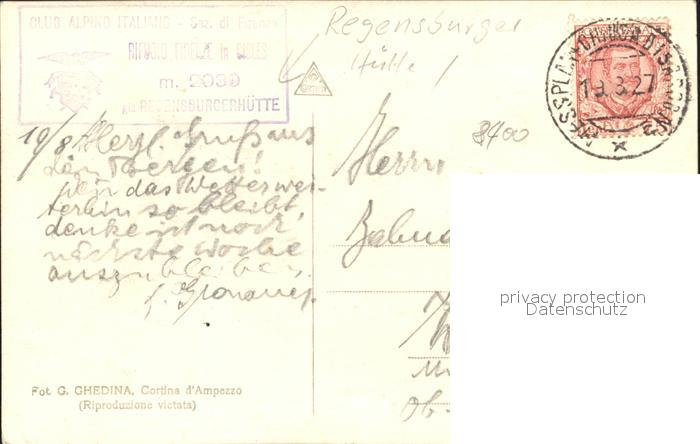 CLUB ALPINO ITALIANO - Sez. di Firenze
RIFUGIO FIRENZE in CISLES
m. 2039
già REGENSBURGERHÜTTE
Regensburger
Hütte /
19 8 27
8400
19/8 Herzl. Gruß aus
den Bergen!
Wenn das Wetter wei-
terhin so bleibt,
denke ich noch
nächste Woche
auszubleiben.
Herrn
privacy protection
Datenschutz
Fot. G. GHEDINA, Cortina d'Ampezzo
(Riproduzione vietata)